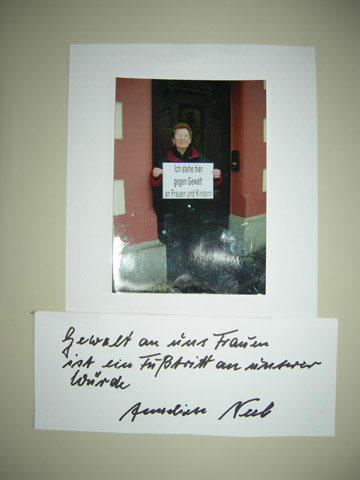 Ich stehe hier
gegen Gewalt
an Frauen und Kindern
Gewalt an uns Frauen
ist ein Fußtritt an unserer
Würde
Anneliese Neeb